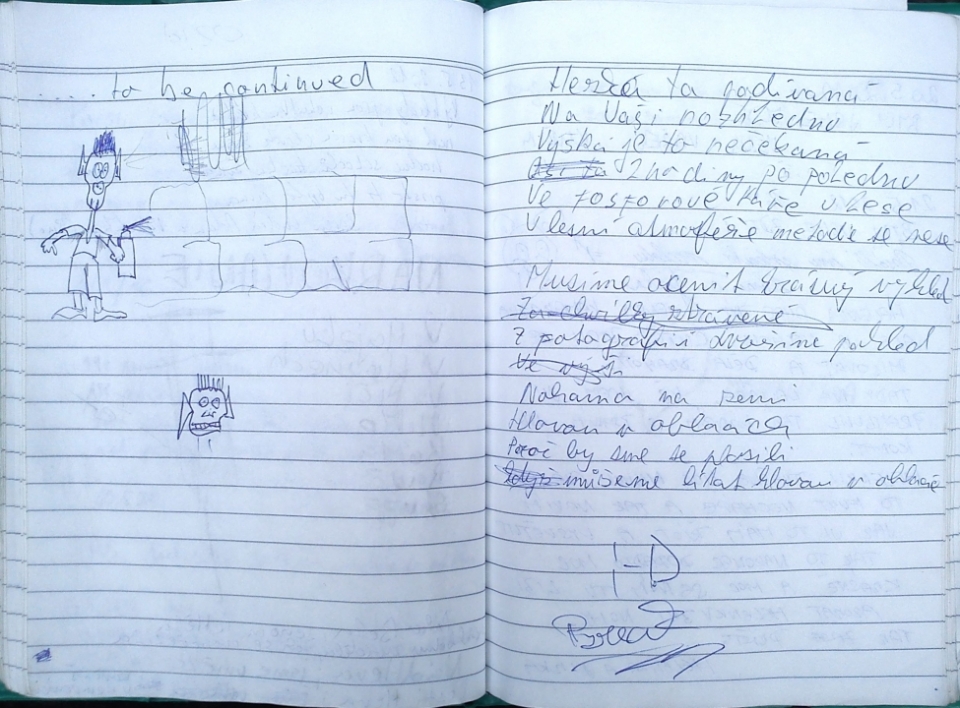 .... to be continued
Herzá ta podívaná
Na Vaší rozhlednu
Výška je to nečekaná
2 hodiny po polednu
Ve fosforové káře v lese
V lesní atmosféře melodie se nese
Musíme ocenit krásný výhled
Za chvilky ztrávené
Z fotografií dvojsime pohled
Ve výši
Nohama na zemi
Hlavou v oblacích
Proč by sme se plasili
když můžeme lítat hlavou v oblacích
:-D